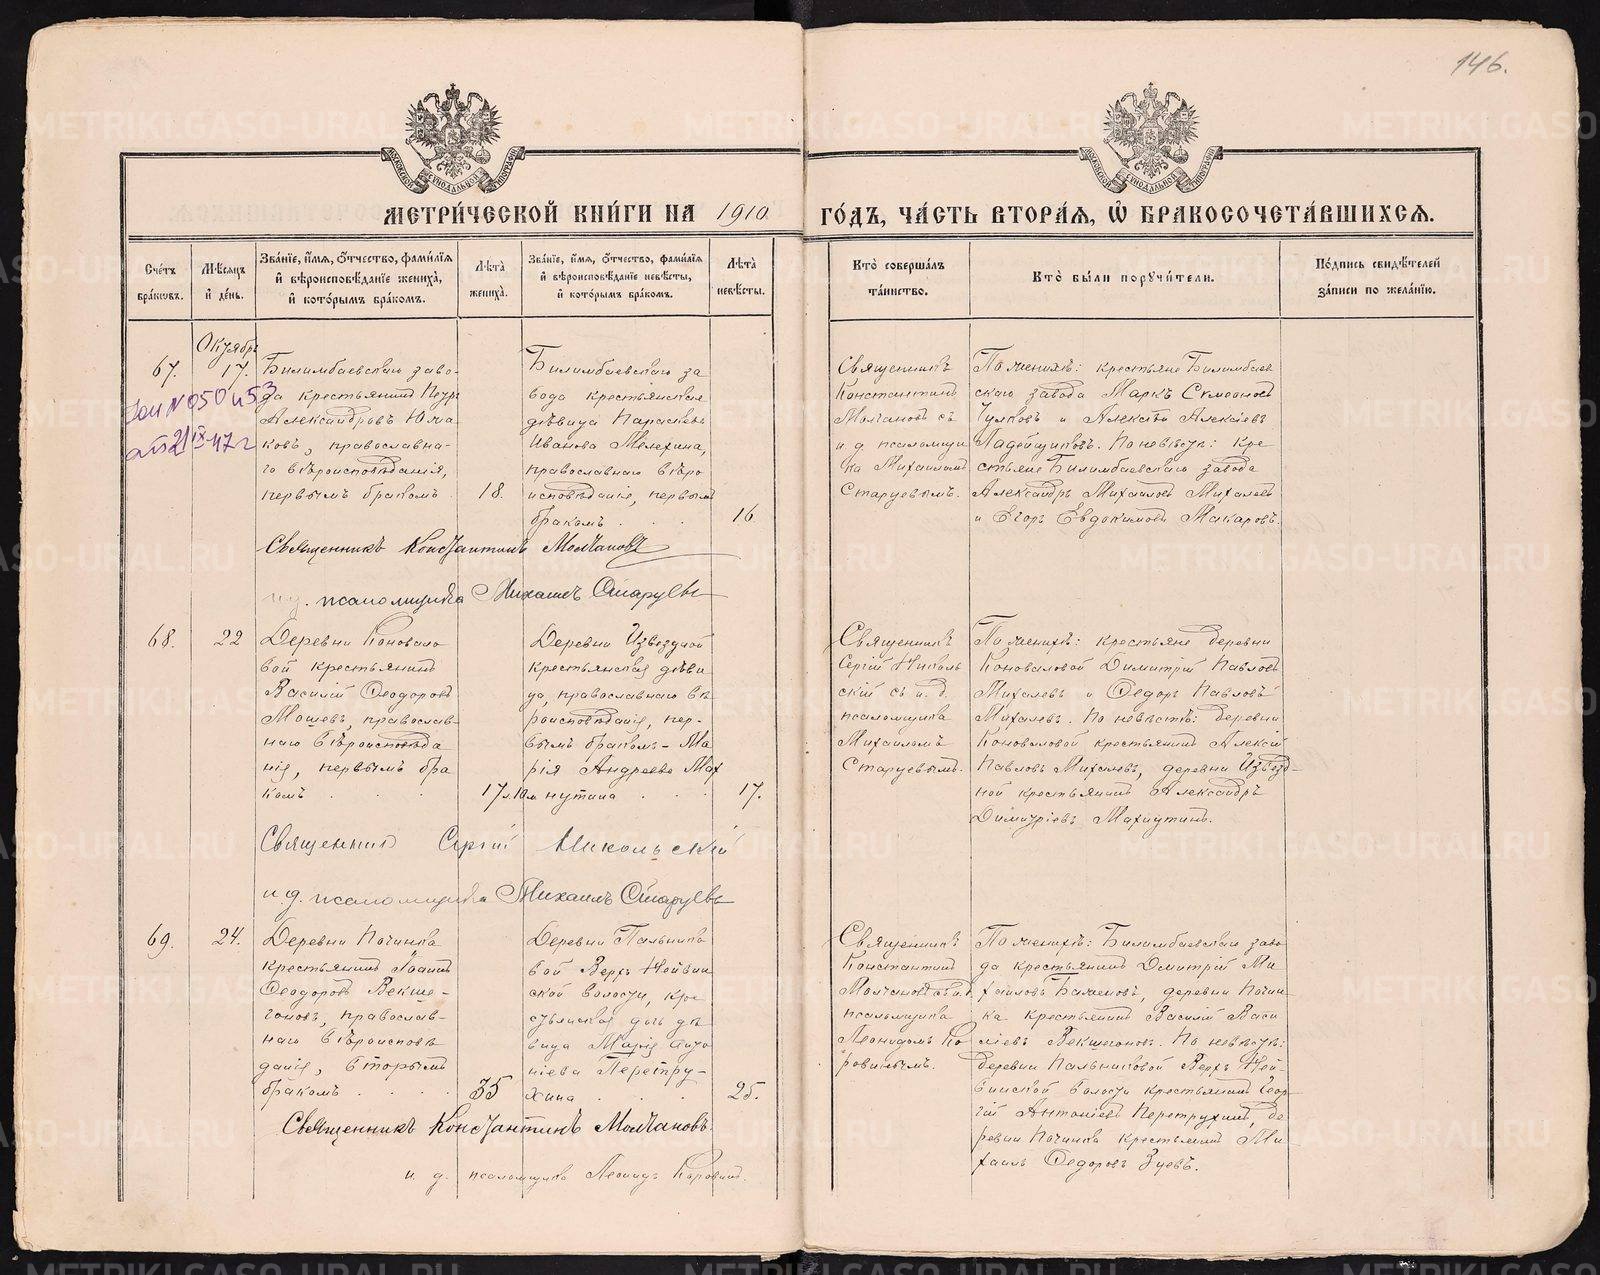 146.
МЕТРИ́ЧЕСКОЙ КНИ́ГИ НА 1910 ГО́ДЪ, ЧА́СТЬ ВТОРА́Ѧ, Ѽ БРАКОСОЧЕТА́ВШИХСѦ.
Сче́тъ бра́кѡвъ.
Мѣ́сѧцъ и҆ де́нь.
Зва́нїе, и҆́мѧ, ѻ҆́тчество, фами́лїѧ
и҆ вѣроисповѣ́данїе жениха̀,
и҆ кото́рымъ бра́комъ.
Лѣ́та жениха̀.
Зва́нїе, и҆́мѧ, ѻ҆́тчество, фами́лїѧ
и҆ вѣроисповѣ́данїе невѣ́сты,
и҆ кото́рымъ бра́комъ.
Лѣ́та невѣ́сты.
Кто̀ соверша́лъ та́инство.
Кто̀ бы́ли порꙋчи́тели.
По́дпись свидѣ́телей за́писи по жела́нїю.
Октябрь
67.
17.
Билимбаевскаго заво-
да крестьянинъ Петръ
Александровъ Юма-
ковъ, православна-
го вѣроисповѣданія,
первымъ бракомъ
18.
Билимбаевскаго за
вода крестьянская
дѣвица Параскева
Иванова Мелехина,
православнаго вѣро
исповѣданія, первымъ
бракомъ . . .
16
Священникъ
Константинъ
Молчановъ съ
и. д. псаломщи
ка Михаиломъ
Старцевымъ.
По женихѣ: крестьяне Билимбаев
скаго завода Маркъ Симеоновъ
Чулковъ и Алексѣй Алексѣевъ
Ладейщиковъ. По невѣстѣ: кре
стьяне Билимбаевскаго завода
Александръ Михаиловъ Михалевъ
и Егоръ Евдокимовъ Макаровъ.
Священникъ Константинъ Молчановъ
и.д. псаломщика Михаилъ Старцевъ
68.
22
Деревни Коновало
вой крестьянинъ
Василій Ѳеодоровъ
Мошевъ, православ-
наго вѣроисповѣда
нія, первымъ бра
комъ . . .
17 л. 10 м
Деревни Извездной
крестьянская дѣви
ца, православнаго вѣ
роисповѣданія, пер-
вымъ бракомъ - Ма
рія Андреева Мах
нутина . . .
17.
Священникъ
Сергій Николь
скій съ и. д.
псаломщика
Михаиломъ
Старцевымъ.
По женихѣ: крестьяне деревни
Коноваловой Димитрій Павловъ
Михалевъ и Ѳедоръ Павловъ
Михалевъ. По невѣстѣ: деревни
Коноваловой крестьянинъ Алексій
Павловъ Михалевъ, деревни Извезд-
ной крестьянинъ Александръ
Димитріевъ Махнутинъ.
Священникъ Сергій Никольскій
и.д. псаломщика Михаилъ Старцевъ
69.
24.
Деревни Починка
крестьянинъ Іоаннъ
Ѳеодоровъ Векше-
гоновъ, православ-
наго вѣроисповѣ
данія, вторымъ
бракомъ . . . .
35
Деревни Пальнико
вой Верхъ Нейвин
ской волости, кре
стьянская дочь дѣ
вица Марія Анто
ніева Перетру-
хина . . .
25.
Священникъ
Константинъ
Молчановъ съ и. д.
псаломщика
Леонидомъ Ко
ровинымъ.
По женихѣ: Билимбаевскаго заво
да крестьянинъ Дмитрій Ми
хаиловъ Баженовъ, деревни Почин
ка крестьянинъ Василій Васи
ліевъ Векшегоновъ. По невѣстѣ:
деревни Пальниковой Верхъ Ней-
винской волости крестьянинъ Геор
гій Антоніевъ Перетрухинъ, де
ревни Починка крестьянинъ Ми
хаилъ Ѳедоровъ Зуевъ.
Священникъ Константинъ Молчановъ.
и. д. псаломщика Леонидъ Коровинъ.